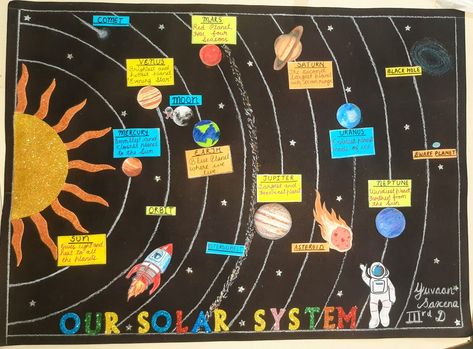 COMET
MARS
Red Planet
Has four
Seasons
VENUS
Brightest and
Hottest planet
Evening Star
MOON
SATURN
The Second
Largest planet
BLACK HOLE
MERCURY
Smallest and
Closest planet
to the Sun
EARTH
Blue Planet
where we
live
URANUS
Coldest planet
made of ice
DWARF PLANET
JUPITER
Largest and
heaviest planet
NEPTUNE
Windiest planet
farthest from
the sun
ORBIT
SUN
Gives light and
heat to all
the planets
ASTEROID
Yuvaan
Saxena
IIIrd D
OUR SOLAR SYSTEM